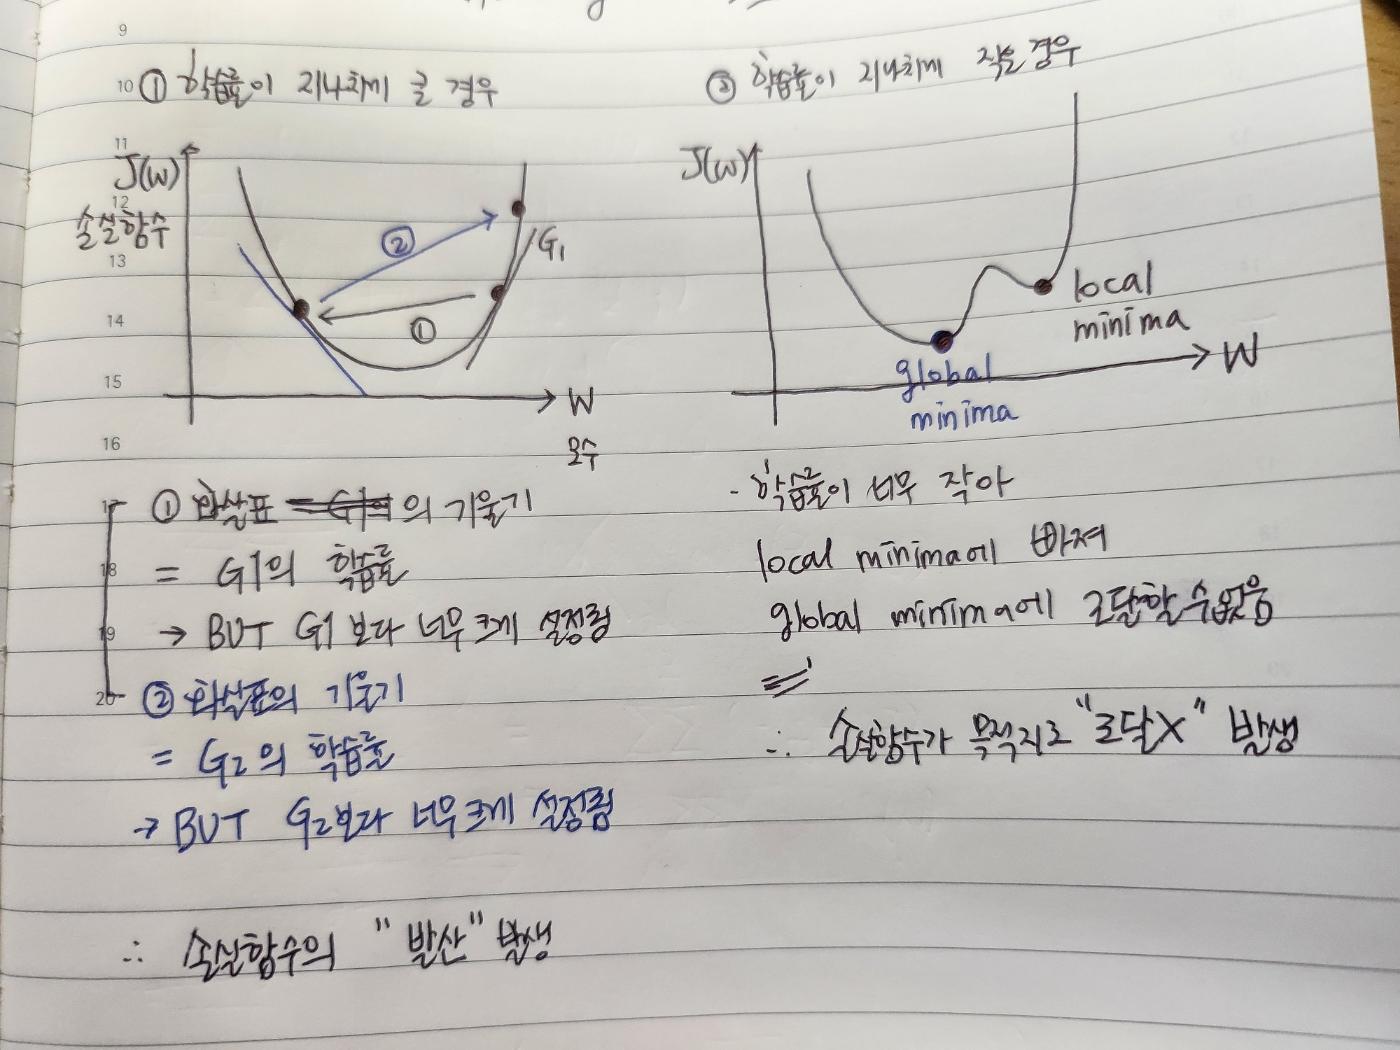 9
10
11
12
13
14
15
16
17
18
19
20
① 학습률이 지나치게 클 경우
J(w)
손실함수
②
G₁
①
W
모수
① 화살표 의 기울기
= G1의 학습률
→ BUT G1보다 너무 크게 설정됨
② 화살표의 기울기
= G₂의 학습률
→ BUT G₂보다 너무 크게 설정됨
∴ 손실함수의 "발산" 발생
② 학습률이 지나치게 작을 경우
J(w)
local
minima
W
global
minima
- 학습률이 너무 작아
local minima에 빠져
global minima에 도달할 수 없음
∴ 손실함수가 목적지로 "도달X" 발생